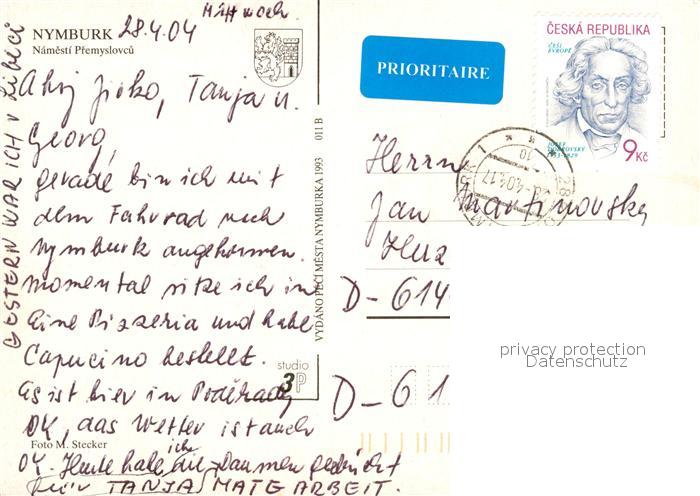 Mittwoch
NYMBURK 28.4.04
Náměstí Přemyslovců
Ahoj Jirko, Tanja u.
Georg,
gerade bin ich mit
dem Fahrrad nach
Nymburk angekommen.
Momental sitze ich in
eine Pizzeria und habe
Capucino bestellt.
Es ist hier in Poděbrady
OK, das Wetter ist auch
Foto M. Stecker
OK. Heute habe ich die Daumen gedrückt
für TANJAS MATE ARBEIT.
GESTERN WAR ICH V LIBICI
VYDÁNO PÉČÍ MĚSTA NYMBURKA 1993 011 B
studio
3P
PRIORITAIRE
ČESKÁ REPUBLIKA
ČEŠI
EVROPĚ
JOSEF
DOBROVSKÝ
1753-1829
9Kč
Herrn
Jan Martinovský
D-614
D-61
privacy protection
Datenschutz